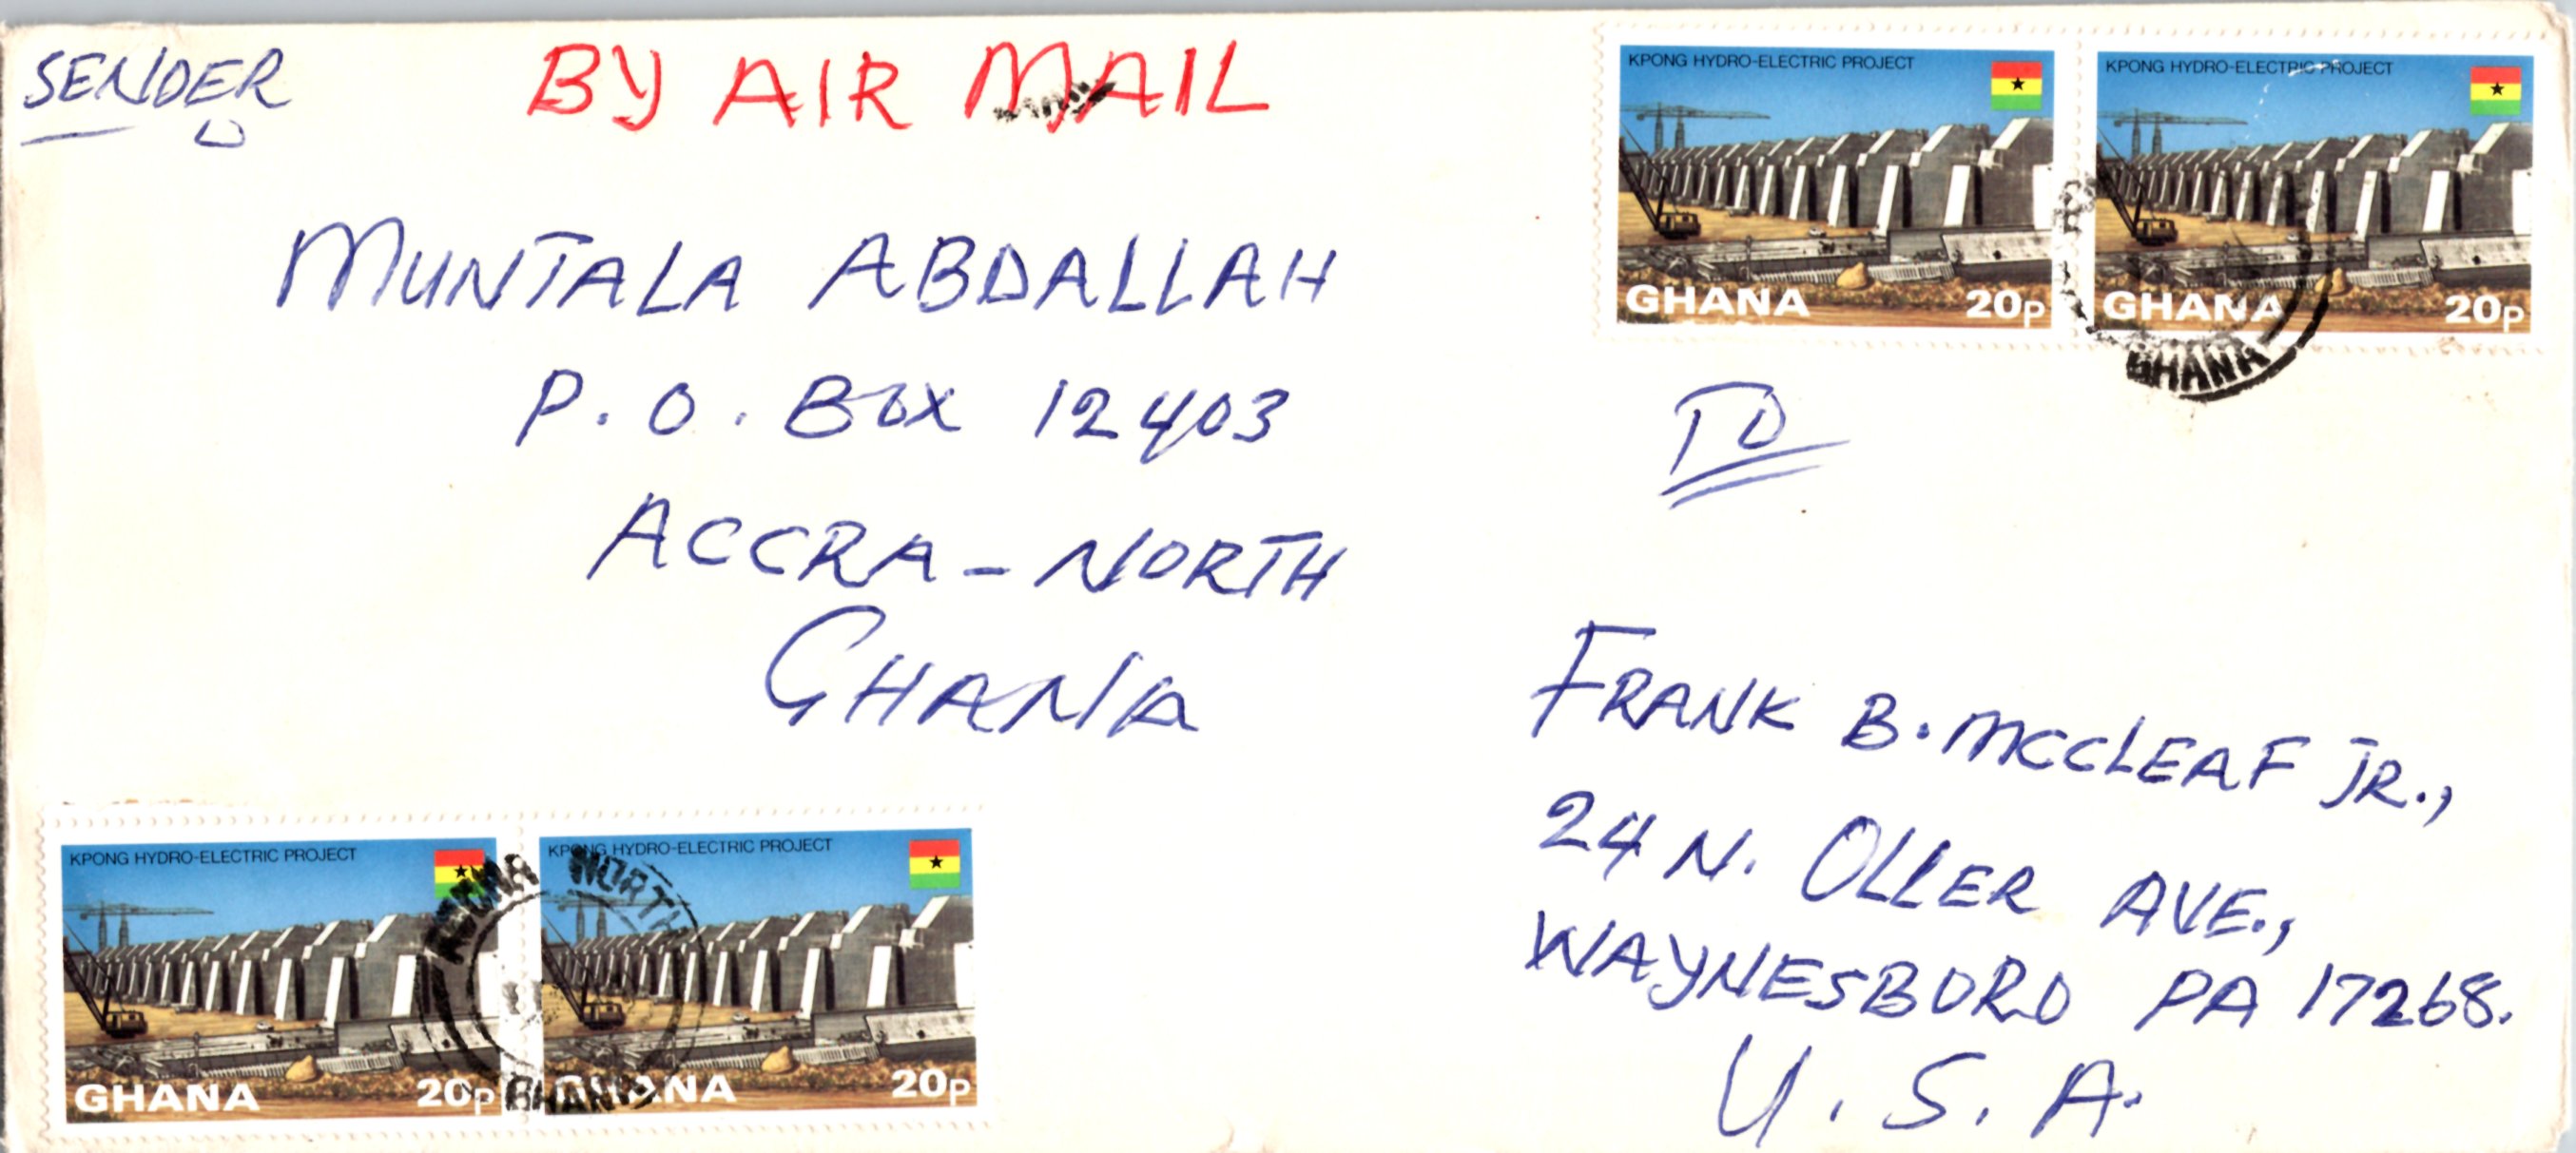 SENDER
BY AIR MAIL
MUNTALA ABDALLAH
P. O. BOX 12403
ACCRA - NORTH
GHANA
KPONG HYDRO-ELECTRIC PROJECT
GHANA 20p
KPONG HYDRO-ELECTRIC PROJECT
GHANA 20p
GHANA
TO
FRANK B. MCCLEAF JR.,
24 N. OLLER AVE.,
WAYNESBORO PA 17268.
U. S. A.
KPONG HYDRO-ELECTRIC PROJECT
GHANA 20p
KPONG HYDRO-ELECTRIC PROJECT
GHANA 20p
ACCRA NORTH
GHANA